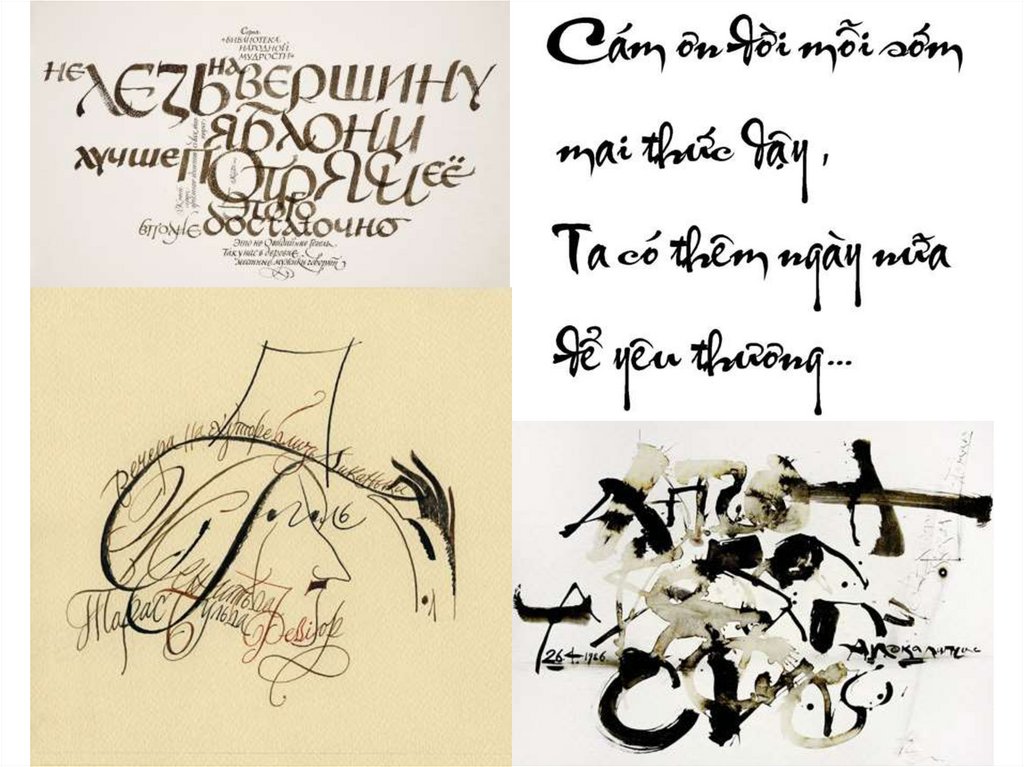 Серия
«БИБЛИОТЕКА
НАРОДНОЙ
МУДРОСТИ»
НЕ ЛЕЗЬ НА ВЕРШИНУ
ЯБЛОНИ
лучше ПОТРЯСИ её
ЭТОГО
вполне достаточно
Это не Овидий, не Гегель.
Так у нас в деревне
местные мужики говорят
Cám ơn đời mỗi sớm
mai thức dậy,
Ta có thêm ngày nữa
để yêu thương...
Вечера на хуторе близ Диканьки
Гоголь
Тарас Бульба
Ревизор
26.4.1986
Апокалипсис